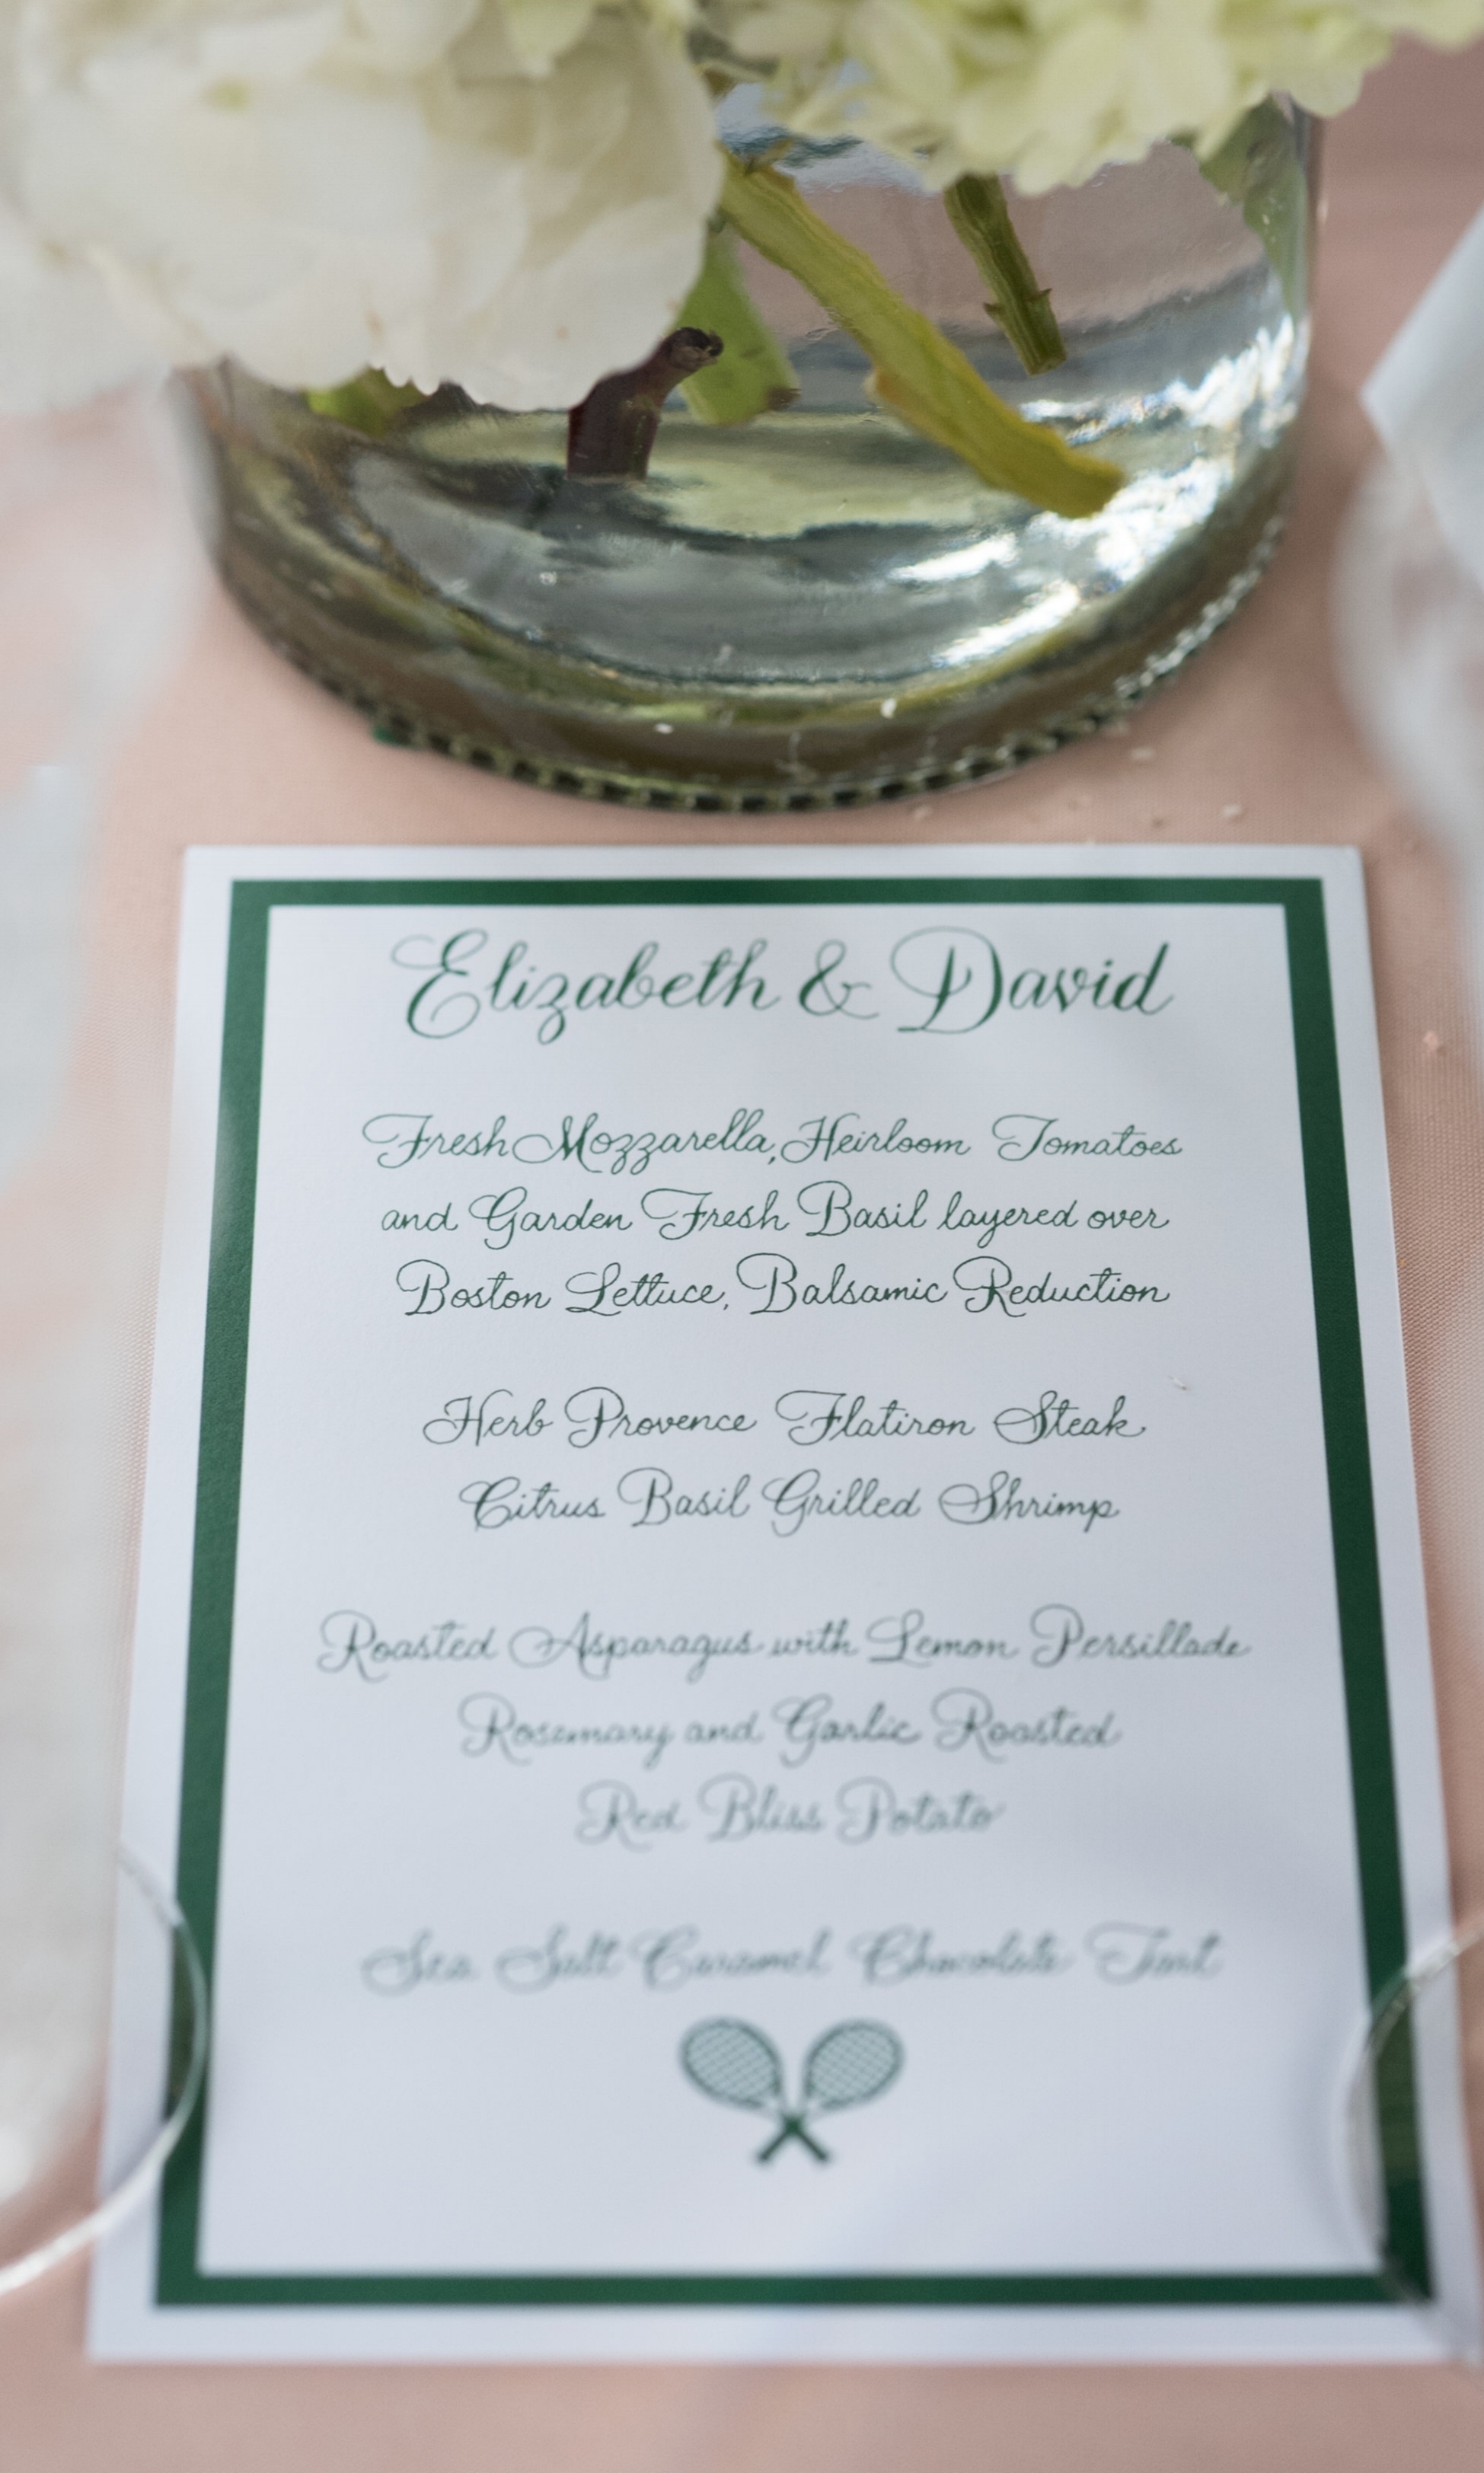 Elizabeth & David
Fresh Mozzarella, Heirloom Tomatoes
and Garden Fresh Basil layered over
Boston Lettuce, Balsamic Reduction
Herb Provence Flatiron Steak
Citrus Basil Grilled Shrimp
Roasted Asparagus with Lemon Persillade
Rosemary and Garlic Roasted
Red Bliss Potato
Sea Salt Caramel Chocolate Tart